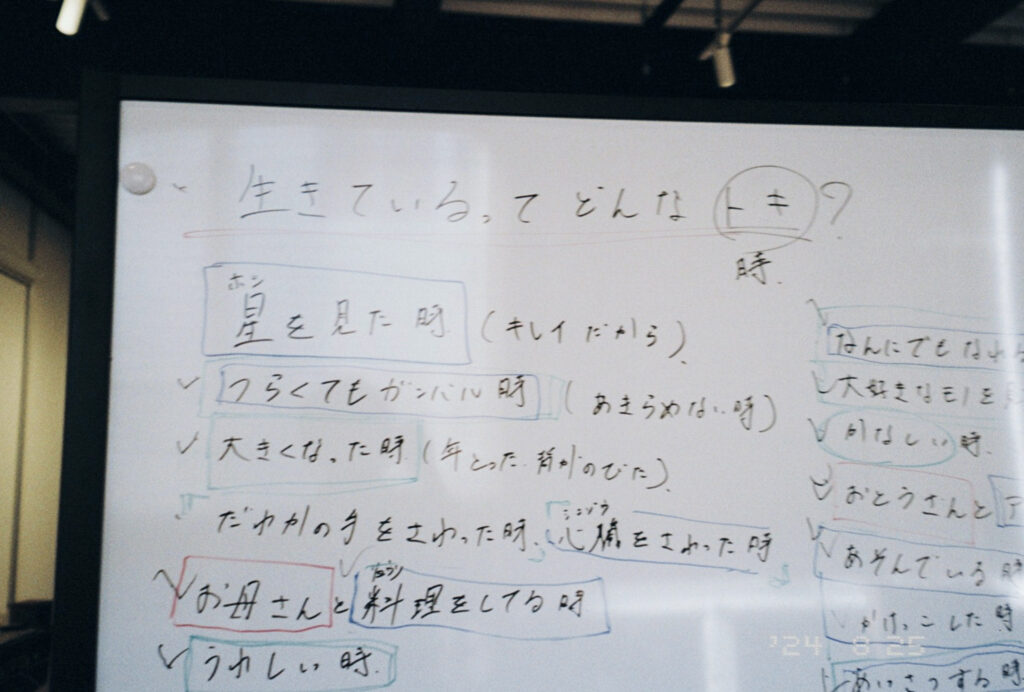 生きているってどんなトキ?
時
ホシ
星を見た時 (キレイだから)
つらくてもガンバル時 (あきらめない時)
大きくなった時 (年とった 背がのびた)
だれかの手をさわった時 心臓をさわった時
お母さんと料理をしてる時
うれしい時
なんにでもなれ
大好きなモノを
かなしい時
おとうさんと
あそんでいる時
かけっこした時
あいさつする時
'24 8 25